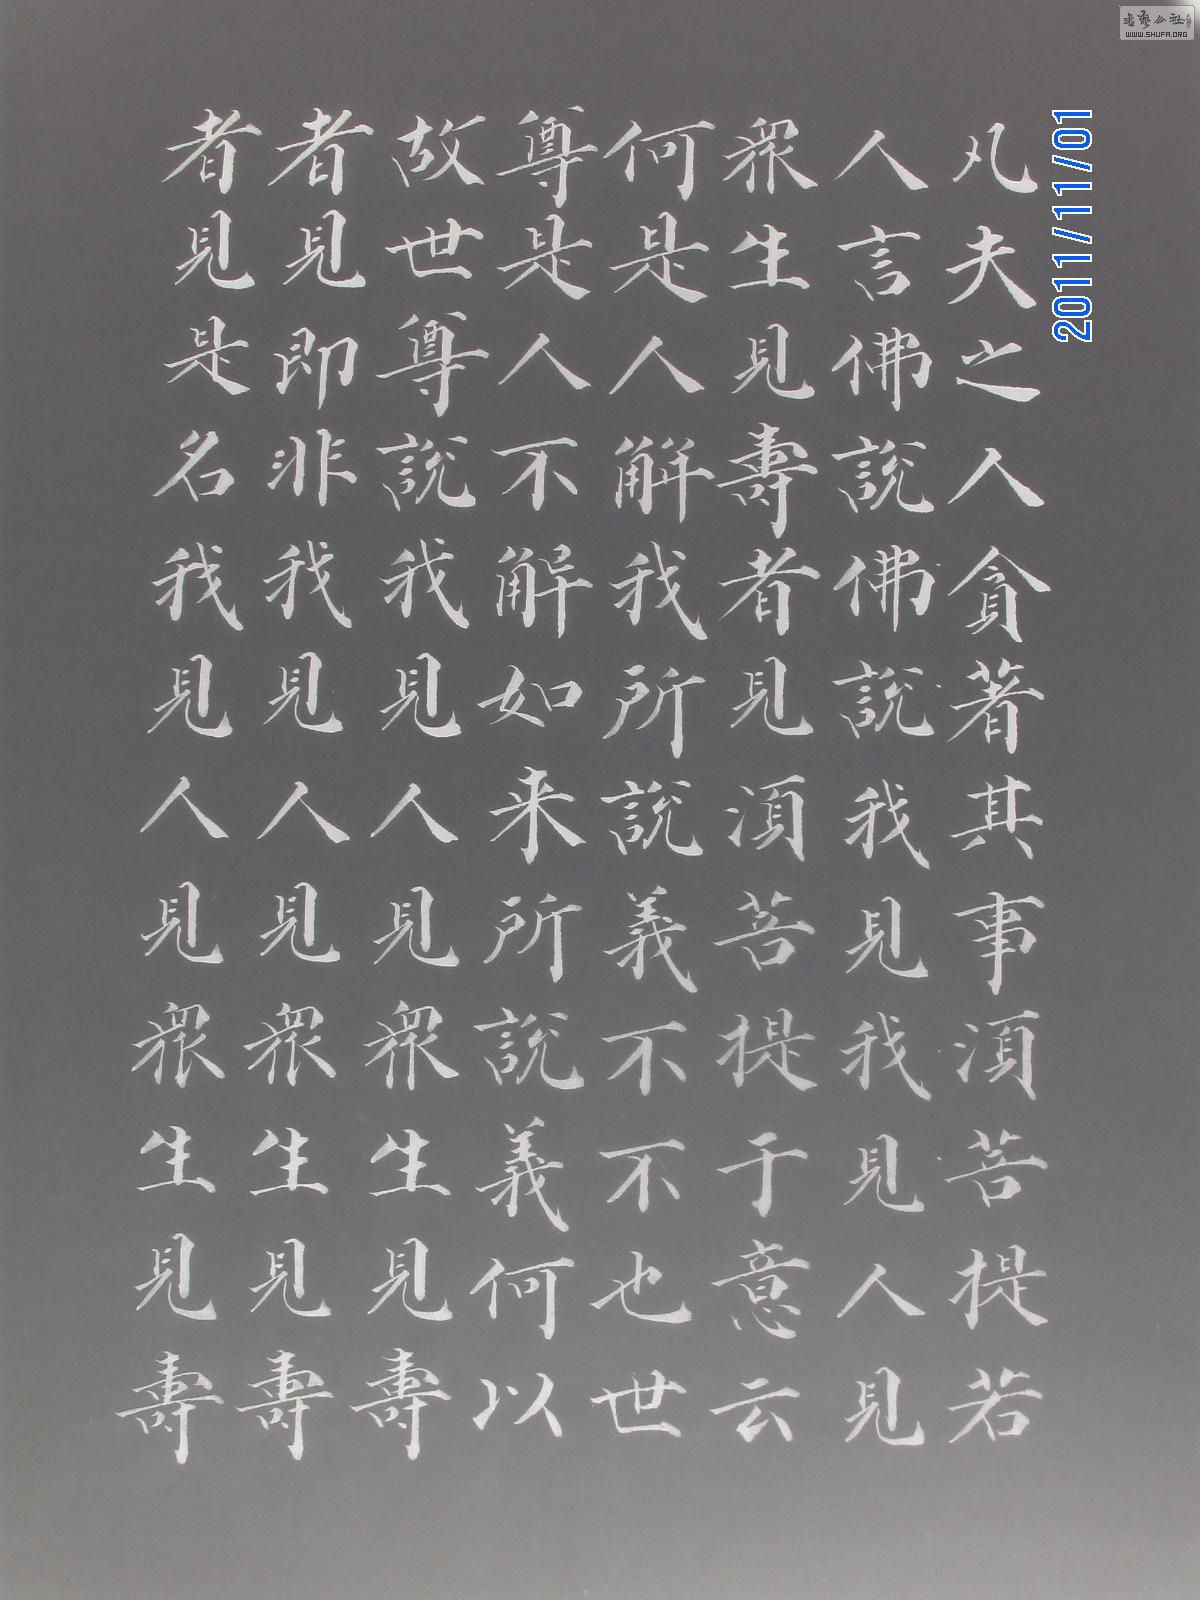 凡夫之人貪著其事湏菩提若
人言佛說佛說我見我見人見
眾生見壽者見湏菩提于意云
何是人解我所說義不不也世
尊是人不解如来所說義何以
故世尊說我見人見眾生見壽
者見即非我見人見眾生見壽
者見是名我見人見眾生見壽
2011/11/01
WWW.SHUFA.ORG